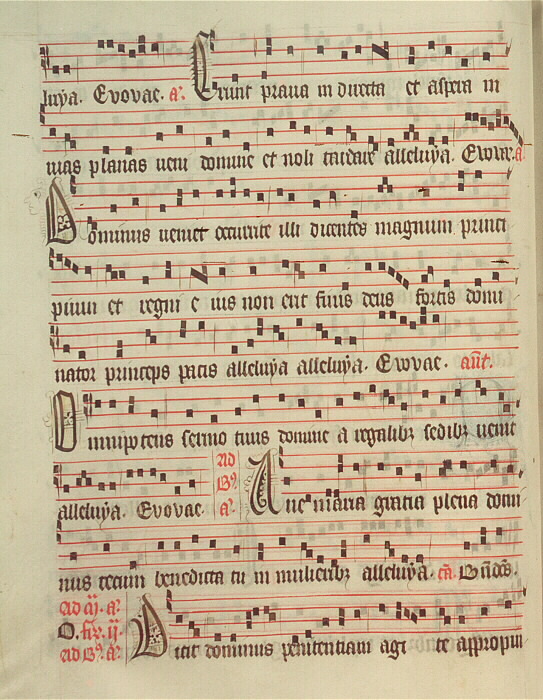 luya. Evovae. a. Erunt praua in directa et aspera in
uias planas ueni domine et noli tardare alleluya. Evovae. a.
Dominus ueniet occurrite illi dicentes magnum princi
pium et regni e ius non erit finis deus fortis domi
nator princeps pacis alleluya alleluya. Evovae. ant.
Omnipotens sermo tuus domine a regalibz sedibz ueniet
alleluya. Evovae. Ad B9 a. Aue maria gratia plena domi
nus tecum benedicta tu in mulieribz alleluya. ca. Bndcs.
ad a. Dicit dominus penitentiam agi te appropin